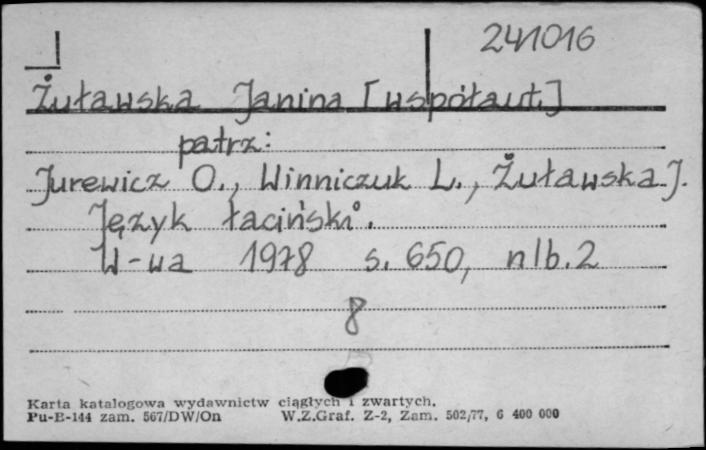 241016
Żuławska Janina [współaut.]
patrz:
Jurewicz O., Winniczuk L., Żuławska J.
Język łaciński.
W-wa 1978 s. 650, nlb. 2
8
Karta katalogowa wydawnictw ciągłych i zwartych.
Pu-B-144 zam. 567/DW/On W.Z.Graf. Z-2, Zam. 502/77, 6 400 000